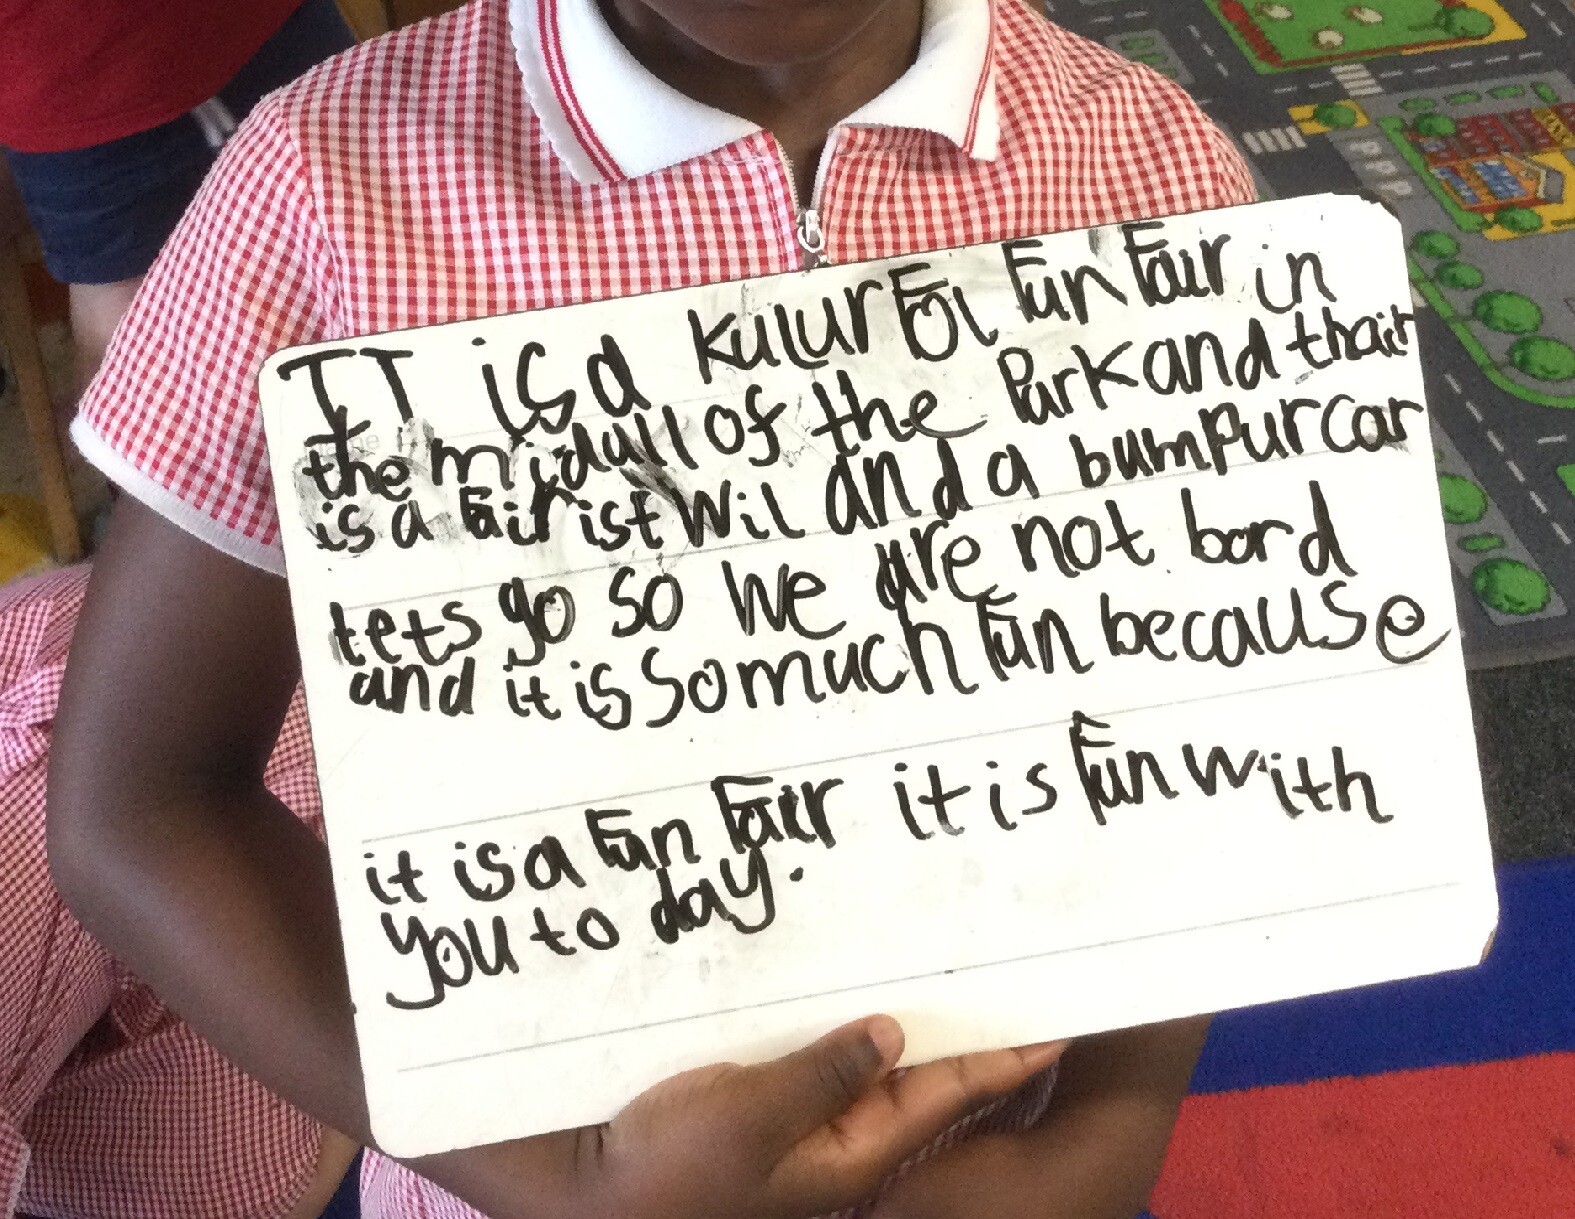 IT is a kulurFol Fun Fair in
the midall of the Park and thair
is a Fairist wil and a bumpur car
lets go so we are not bord
and it is so much Fun because
it is a Fun Fair it is Fun with
you to day.